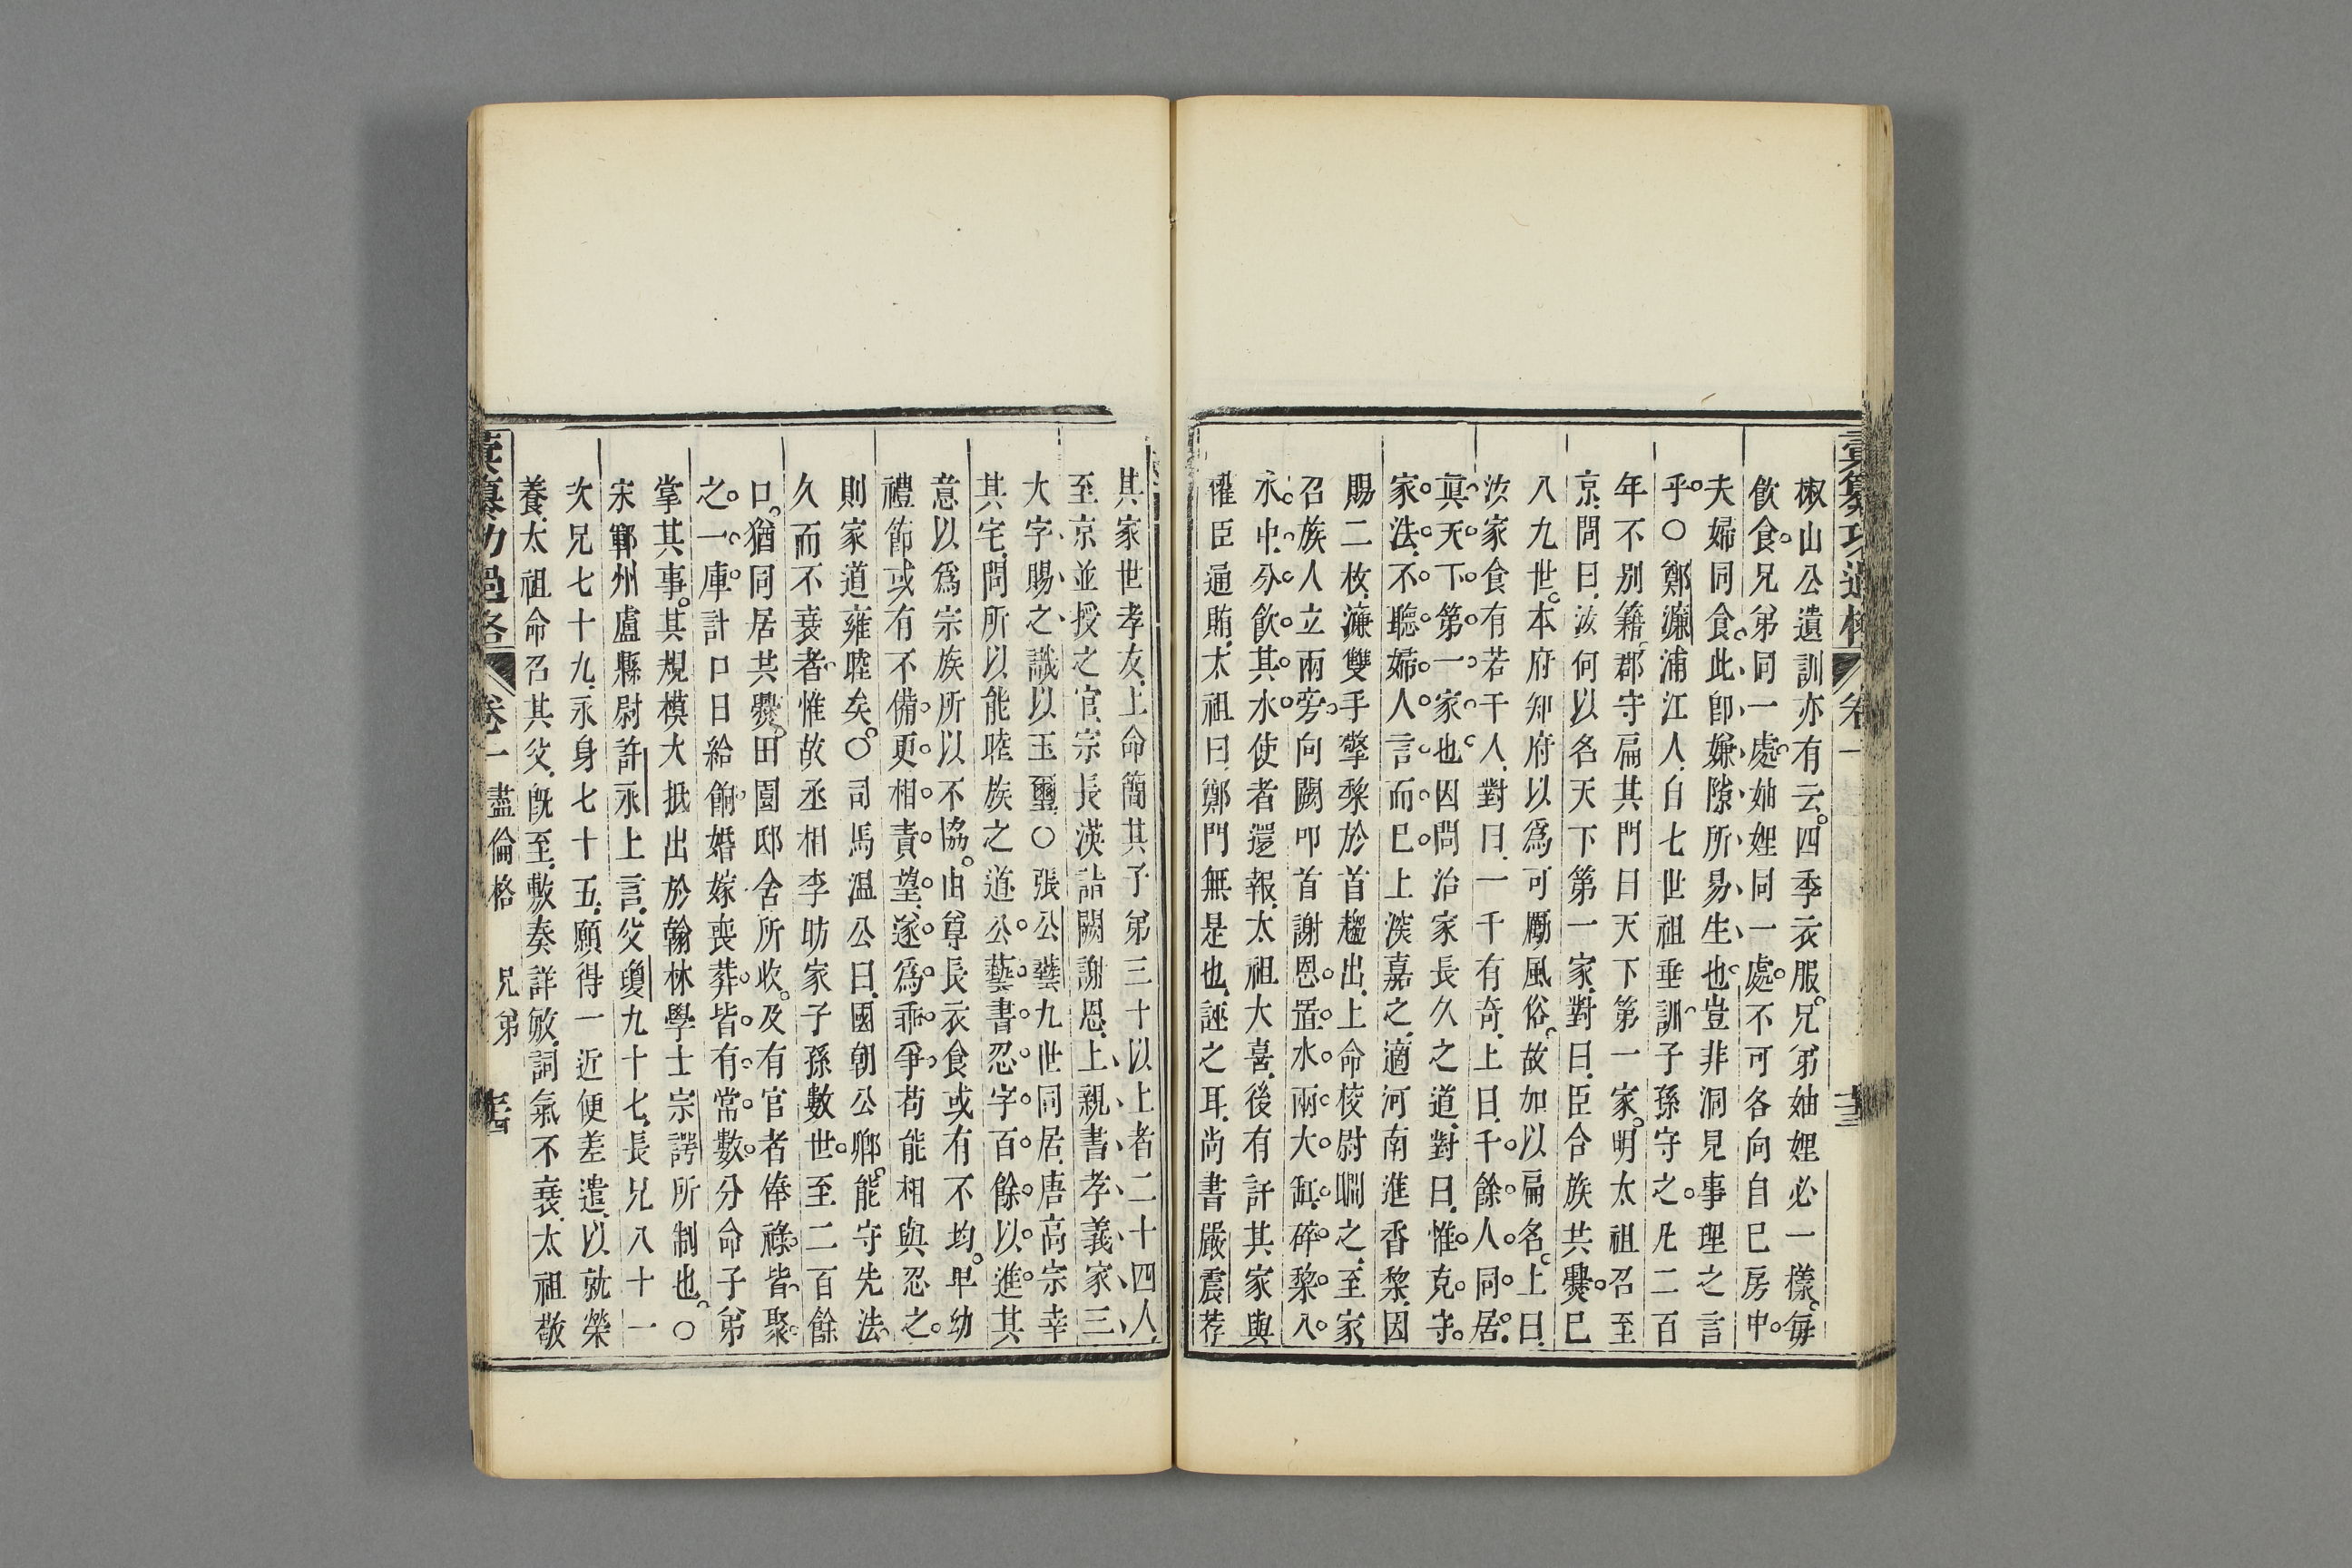 彙纂功過格 卷一
椒山公遺訓亦有云。四季衣服。兄弟妯娌必一樣。每
飲食。兄弟同一處。妯娌同一處。不可各向自己房中。
夫婦同食。此卽嫌隙所易生也。豈非洞見事理之言
乎。○鄭濂浦江人、自七世祖垂訓。子孫守之。凡二百
年不別籍。郡守扁其門曰天下第一家。明太祖召至
京、問曰、汝何以名天下第一家、對曰、臣合族共爨。已
八九世。本府知府以爲可勵風俗。故加以扁名。上曰、
汝家食有若干人、對曰、一千有奇、上曰、千餘人同居。
眞天下第一家也。因問治家長久之道、對曰、惟克守。
家法、不聽婦人言而已。上深嘉之、適河南進香黎、因
賜二枚、濂雙手擎黎於首趨出、上命校尉瞷之、至家、
召族人立兩旁。向闕叩首謝恩。置水兩大缸。碎黎入。
水中。分飲其水。使者還報、太祖大喜、後有訐其家與
權臣通賄、太祖曰、鄭門無是也、誣之耳、尚書嚴震荐
其家世孝友、上命簡其子弟三十以上者二十四人、
至京並授之官、宗長渶詣闕謝恩、上親書孝義家三
大字、賜之、識以玉璽、○張公藝九世同居、唐高宗幸
其宅、問所以能睦族之道。公藝書忍字百餘以進。其
意以爲宗族所以不協。由尊長衣食或有不均。卑幼
禮節或有不備。更相責望。遂爲乖爭。苟能相與忍之。
則家道雍睦矣。○司馬温公曰、國朝公卿。能守先法。
久而不衰者。惟故丞相李昉家子孫數世。至二百餘
口。猶同居共爨。田園邸舍所收。及有官者俸祿。皆聚
之一庫。計口日給餉。婚嫁喪葬。皆有常數。分命子弟
掌其事。其規模大抵出於翰林學士宗諤所制也。○
宋鄆州盧縣尉許永上言、父瓊九十七、長兄八十一
次兄七十九、永身七十五、願得一近便差遣、以就榮
養、太祖命召其父、旣至、敷奏詳敏、詞氣不衰、太祖敬
彙纂功過格 卷一 盡倫格 兄弟